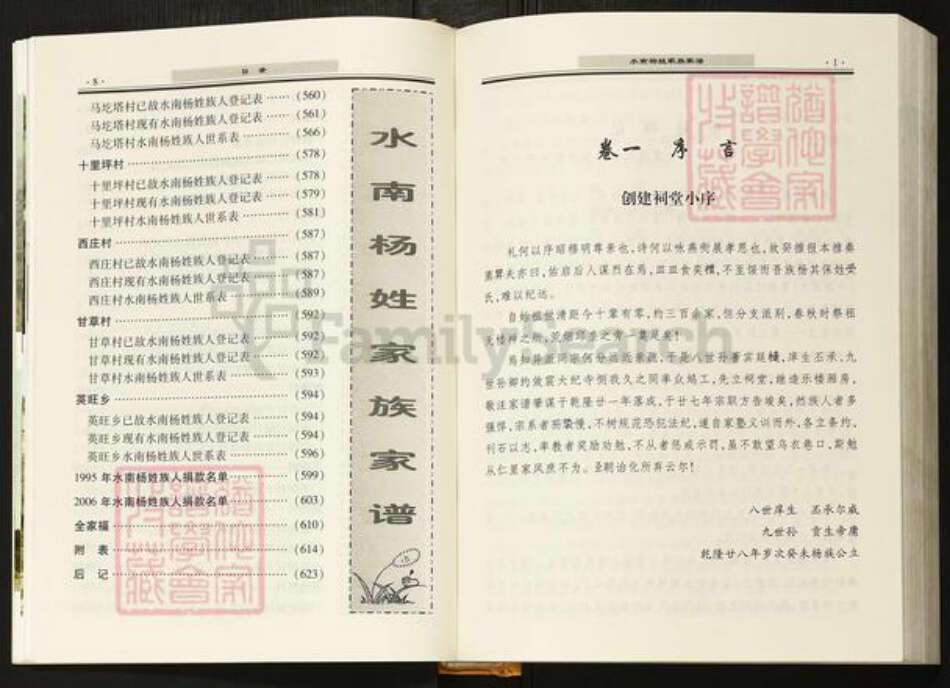 · 8 ·
目 录
马圪塔村已故水南杨姓族人登记表 …… (560)
马圪塔村现有水南杨姓族人登记表 …… (561)
马圪塔村水南杨姓族人世系表 …… (566)
十里坪村 …… (578)
十里坪村已故水南杨姓族人登记表 …… (578)
十里坪村现有水南杨姓族人登记表 …… (579)
十里坪村水南杨姓族人世系表 …… (581)
西庄村 …… (587)
西庄村已故水南杨姓族人登记表 …… (587)
西庄村现有水南杨姓族人登记表 …… (587)
西庄村水南杨姓族人世系表 …… (589)
甘草村 …… (592)
甘草村已故水南杨姓族人登记表 …… (592)
甘草村现有水南杨姓族人登记表 …… (592)
甘草村水南杨姓族人世系表 …… (593)
英旺乡 …… (594)
英旺乡已故水南杨姓族人登记表 …… (594)
英旺乡现有水南杨姓族人登记表 …… (594)
英旺乡水南杨姓族人世系表 …… (596)
1995 年水南杨姓族人捐款名单 …… (599)
2006 年水南杨姓族人捐款名单 …… (603)
全家福 …… (610)
附 表 …… (614)
后 记 …… (623)
水南杨姓家族家谱
水南杨姓家族家谱
· 1 ·
卷一 序 言
创建祠堂小序
礼何以序昭穆明尊亲也,诗何以咏燕衎展孝思也,故癸推报本推泰
亦曰,佑启后人谋烈在焉,血食矣,不至馁而吾族杨其保姓受
氏,难以纪远。
自始祖世清距今十辈有零,约三百余家,但分支派别,春秋时祭祖
无楼神之所,荒烟蔓
世孙卿约效震大纪寺恻我久之同率众鸠工,先立祠堂,继造乐楼厢房,
敬汪家谱肇谋于乾隆廿一年落成,于廿七年宗职方告竣矣,然族人者多
强悍,宗系者,不树规范恐犯法纪,遂自家塾义训而外,各立条约,
刊石以志,率教者奖励劝勉,不从者惩戒示罚,虽不敢望乌衣巷口,斯勉
从仁里家风庶不为。圣朝治化所弃云尔!
八世庠生 丕承尔威
九世孙 贡生帝庸
乾隆廿八年岁次癸未杨族公立
FamilySearch